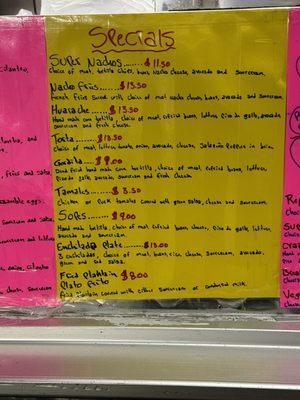 Specials
Super Nachos...... $11.50
choice of meat, tortilla chips, beans, nacho cheese, avocado and sourcream.
Nacho Fries....... $13.50
french fries served with choice of meat nacho cheese, beans, avocado and sourcream.
Huarache...... $13.50
Hand made corn tortilla, choice of meat, refried beans, lettuce, Pico de gallo, avocado,
sourcream and fresh cheese.
Torta....... $13.50
choice of meat, lettuce, tomato, onion, avocado, cheese, Jalapeño Peppers in brine.
$9.00
Deed fried hand made corn tortilla, choice of meat, refried beans, lettuce,
Pico de gallo, avocado, sourcream and fresh cheese.
Tamales..... $3.50
chicken or Pork tamales covered with green salsa, cheese and sourcream.
Sopes........ $9.00
Hand made tortilla, choice of meat, refried beans, cheese, Pico de gallo, lettuce,
avocado and sourcream.
Enchilada Plate....... $13.00
3 enchiladas, choice of meat, beans, rice, cheese, sourcream, avocado,
green and red salsa.
Fried Plantain
Plato Frito $8.00
Fried plantain covered with either sourcream or condensed milk.
cilantro,
and
fries and salsa
scramble eggs.
sourcream and salsa
sourcream and lettuce
onion, cilantro
cheese and sourcream.